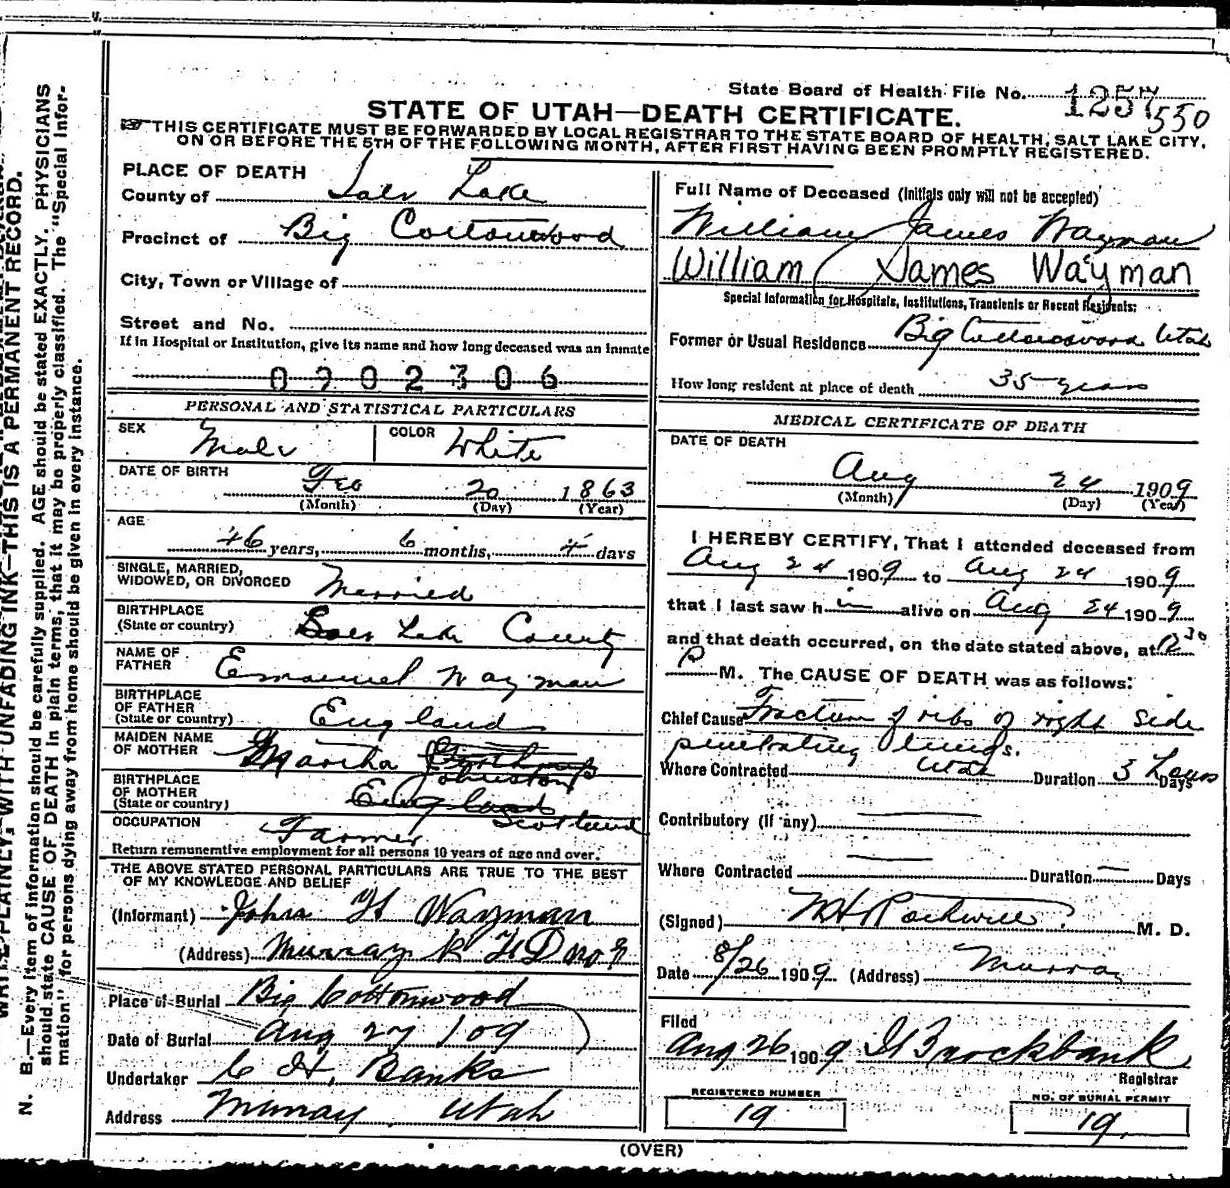 State Board of Health File No. 1257 550
STATE OF UTAH—DEATH CERTIFICATE.
☞THIS CERTIFICATE MUST BE FORWARDED BY LOCAL REGISTRAR TO THE STATE BOARD OF HEALTH, SALT LAKE CITY,
ON OR BEFORE THE 5TH OF THE FOLLOWING MONTH, AFTER FIRST HAVING BEEN PROMPTLY REGISTERED.
PLACE OF DEATH
County of Salt Lake
Precinct of Big Cottonwood
City, Town or Village of
Street and No.
If in Hospital or Institution, give its name and how long deceased was an inmate
0902306
PERSONAL AND STATISTICAL PARTICULARS
SEX Male COLOR White
DATE OF BIRTH Feb 20 1863
(Month) (Day) (Year)
AGE
46 years, 6 months, 4 days
SINGLE, MARRIED,
WIDOWED, OR DIVORCED Married
BIRTHPLACE
(State or country) Salt Lake County
NAME OF
FATHER Emanuel Wayman
BIRTHPLACE
OF FATHER
(State or country) England
MAIDEN NAME
OF MOTHER Martha Johnston
BIRTHPLACE
OF MOTHER
(State or country) England Scotland
OCCUPATION Farmer
Return remunerative employment for all persons 10 years of age and over.
THE ABOVE STATED PERSONAL PARTICULARS ARE TRUE TO THE BEST
OF MY KNOWLEDGE AND BELIEF
(Informant) John H Wayman
(Address) Murray R F D no
Place of Burial Big Cottonwood
Date of Burial Aug 27 / 09
Undertaker C H. Banks
Address Murray Utah
Full Name of Deceased (Initials only will not be accepted)
William James Wayman
William James Wayman
Special Information for Hospitals, Institutions, Transients or Recent Residents:
Former or Usual Residence Big Cottonwood Utah
How long resident at place of death 35 years
MEDICAL CERTIFICATE OF DEATH
DATE OF DEATH
Aug 24 1909
(Month) (Day) (Year)
I HEREBY CERTIFY, That I attended deceased from
Aug 24 1909 to Aug 24 1909
that I last saw him alive on Aug 24 1909
and that death occurred, on the date stated above, at 12 30
P M. The CAUSE OF DEATH was as follows:
Chief Cause Fracture of ribs of right side
penetrating lungs.
Where Contracted Utah Duration 3 hours Days
Contributory (if any)
Where Contracted Duration — Days
(Signed) M. D.
Date 8/26 1909 (Address) Murray
Filed
Aug 26 1909 Brockbank
Registrar
REGISTERED NUMBER
19
NO. OF BURIAL PERMIT
19
(OVER)
WRITE PLAINLY, WITH UNFADING INK—THIS IS A PERMANENT RECORD.
N. B.—Every item of information should be carefully supplied. AGE should be stated EXACTLY. PHYSICIANS
should state CAUSE OF DEATH in plain terms, that it may be properly classified. The "Special Infor-
mation" for persons dying away from home should be given in every instance.